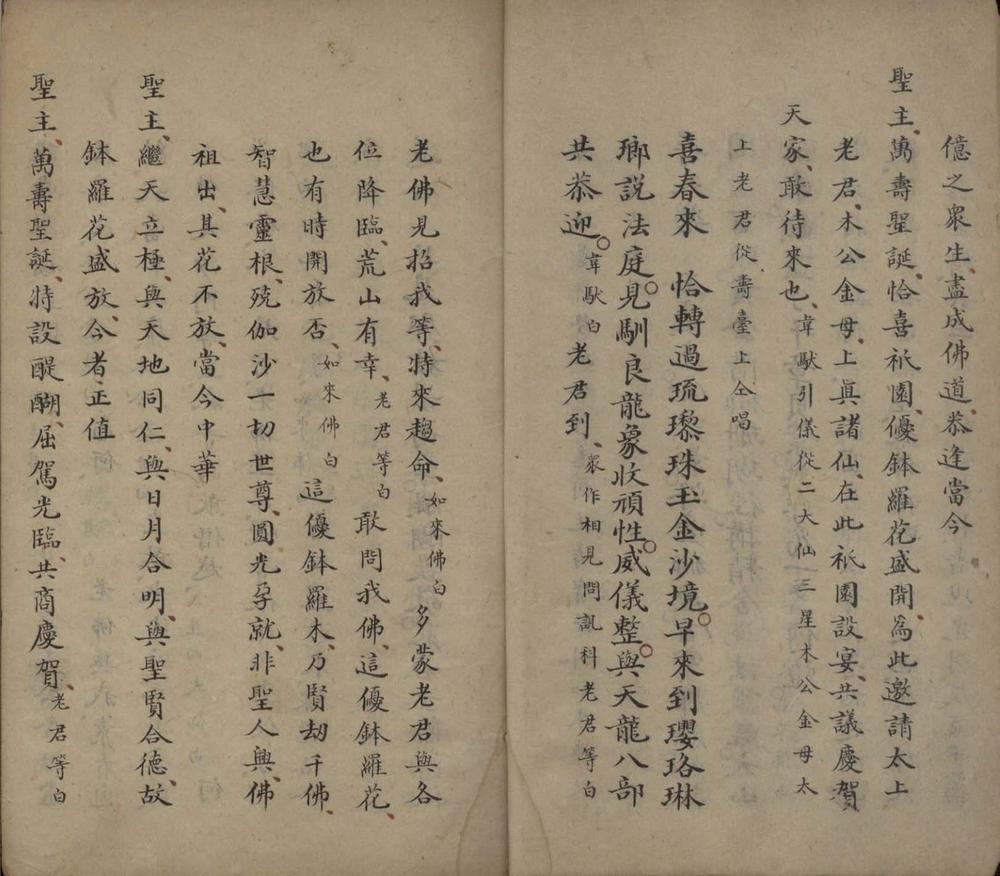 億之衆生、盡成佛道、恭逢當今
聖主、萬壽聖誕、恰喜祇園、優鉢羅花盛開、為此邀請太上
老君、木公金母、上眞諸仙、在此祇園設宴、共議慶賀
天家、敢待來也、韋馱引儀從二大仙三星木公金母太
上老君從壽臺上仝唱
喜春來　恰轉過琉璨珠玉金沙境。早來到瓔珞琳
瑯説法庭。見馴良龍象收頑性。威儀整。與天龍八部
共恭迎。韋馱白老君到、衆作相見問訊科老君等白
老佛見招我等、特來趨命、如來佛白多蒙老君與各
位降臨、荒山有幸、老君等白敢問我佛、這優鉢羅花、
也有時開放否、如來佛白這優鉢羅木、乃賢劫千佛、
智慧靈根、殑伽沙一切世尊、圓光孕就、非聖人興、佛
祖出、具花不放、當今中華
聖主、繼天立極、與天地同仁、與日月合明、與聖賢合德、故
鉢羅花盛放、今者正值
聖主、萬壽聖誕、特設醍醐、屈駕光臨、共商慶賀、老君等白